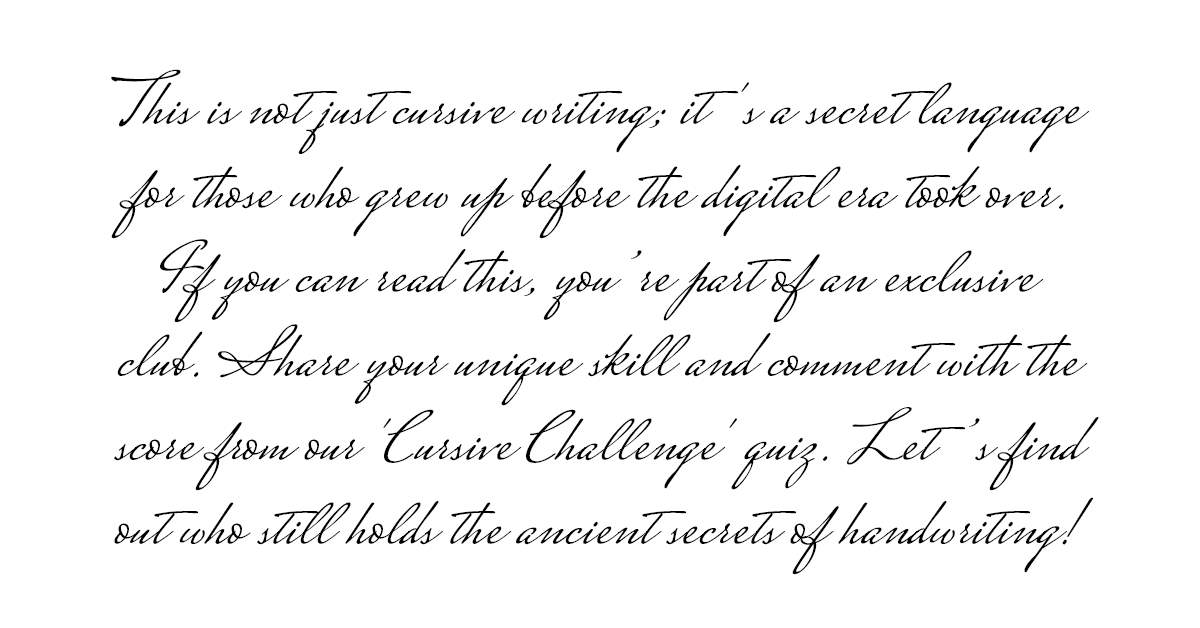 This is not just cursive writing; it's a secret language
for those who grew up before the digital era took over.
If you can read this, you're part of an exclusive
club. Share your unique skill and comment with the
score from our 'Cursive Challenge' quiz. Let's find
out who still holds the ancient secrets of handwriting!